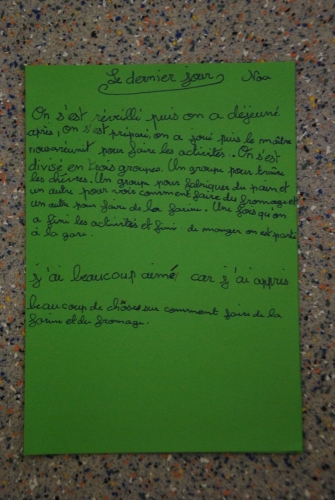 Le dernier jour Noa
On s'est réveillé puis on a déjeuné
après, on s'est préparé, on a joué puis le maître
nous a réunit pour faire les activités. On s'est
divisé en trois groupes. Un groupe pour traire
les chèvres. Un groupe pour fabriquer du pain et
un autre pour voir comment faire du fromage et
un autre pour faire de la farine. Une fois qu'on
a fini les activités et fini de manger on est parti
à la gare.
j'ai beaucoup aimé car j'ai appris
beaucoup de chôses sur comment faire de la
farine et du fromage.